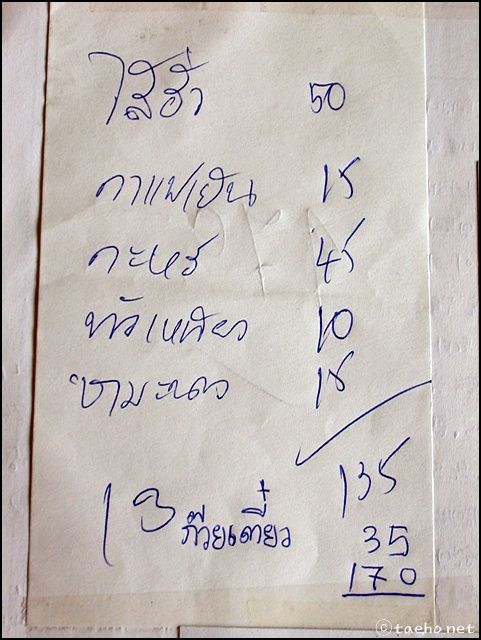 ไส้อั่ว 50
กาแฟเย็น 15
กะหรี่ 45
ข้าวเหนียว 10
ชามะนาว 15
135
13 ก๊วยเตี๋ยว 35
170
©taeho.net